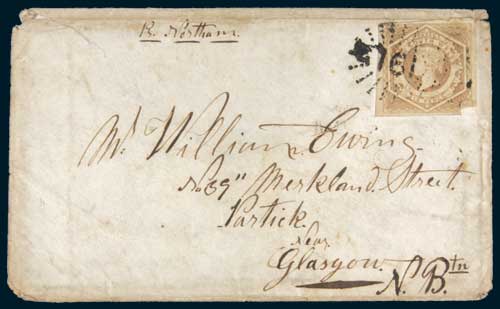 R. Northam
Mr William Ewing
No 39" Merkland Street
Partick
Near
Glasgow
N. Btn